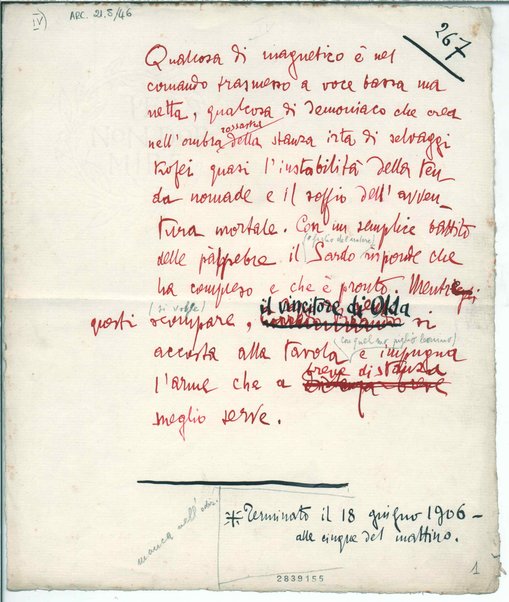 IV)
ARC. 21.8/46
267
Qualcosa di magnetico è nel
comando trasmesso a voce bassa ma
netta, qualcosa di demoniaco che crea
rossastra
nell'ombra della stanza irta di selvaggi
trofei quasi l'instabilità della ten
da nomade e il soffio dell'avven-
tura mortale. Con un semplice battito
delle palpebre il Sardo risponde che
ha compreso e che è pronto. Mentre
(si volge)
il vincitore di Olda
questi scompare, si
accosta alla tavola e impugna
breve distanza
l'arme che a breve
meglio serve.
manca nell'ediz.
Terminato il 18 giugno 1906 -
alle cinque del mattino.
2839155
1